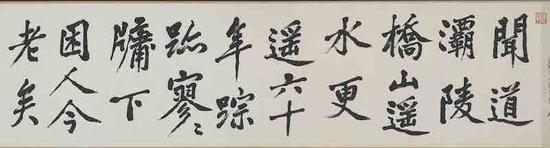 聞道
灞陵
橋山遥
水更
遥六十
年踪
跡寥〻
牖下
困人今
老矣